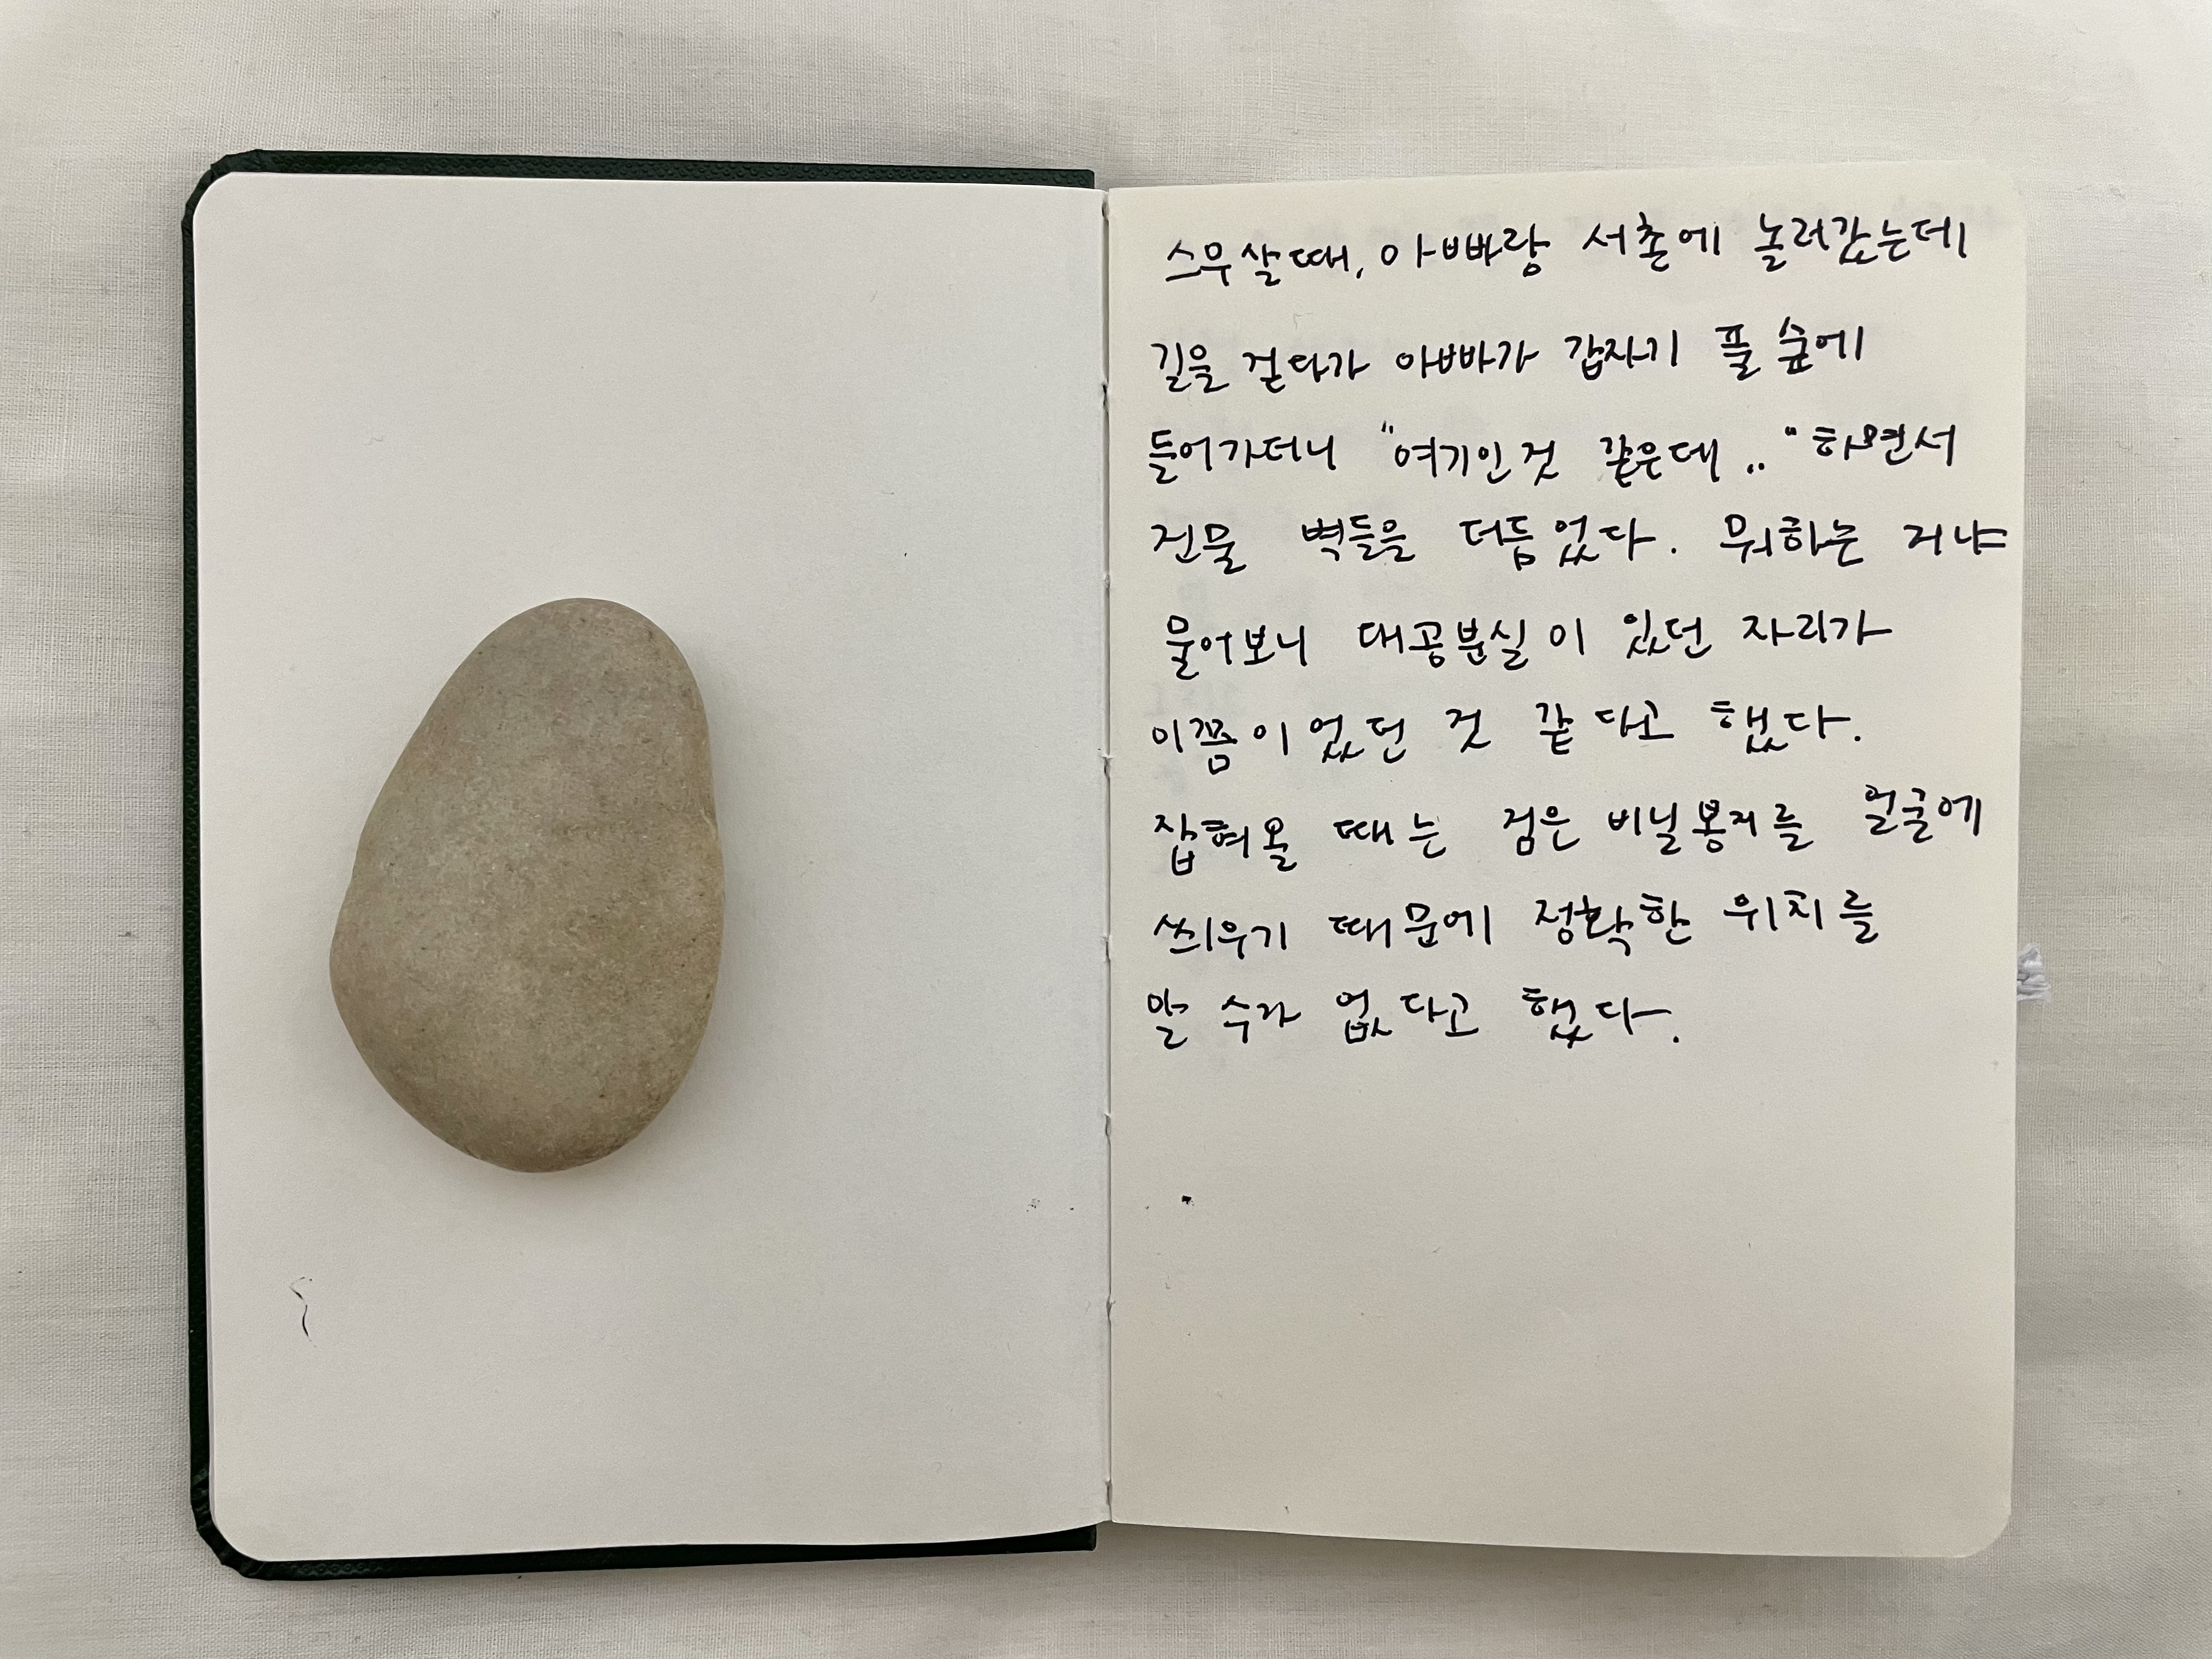 스무살때, 아빠랑 서촌에 놀러갔는데
길을 걷다가 아빠가 갑자기 풀 숲에
들어가더니 "여기인것 같은데.." 하면서
건물 벽들을 더듬었다. 뭐하는 거냐
물어보니 대공분실이 있던 자리가
이쯤이었던 것 같다고 했다.
잡혀올 때는 검은 비닐봉지를 얼굴에
씌우기 때문에 정확한 위치를
알 수가 없다고 했다.